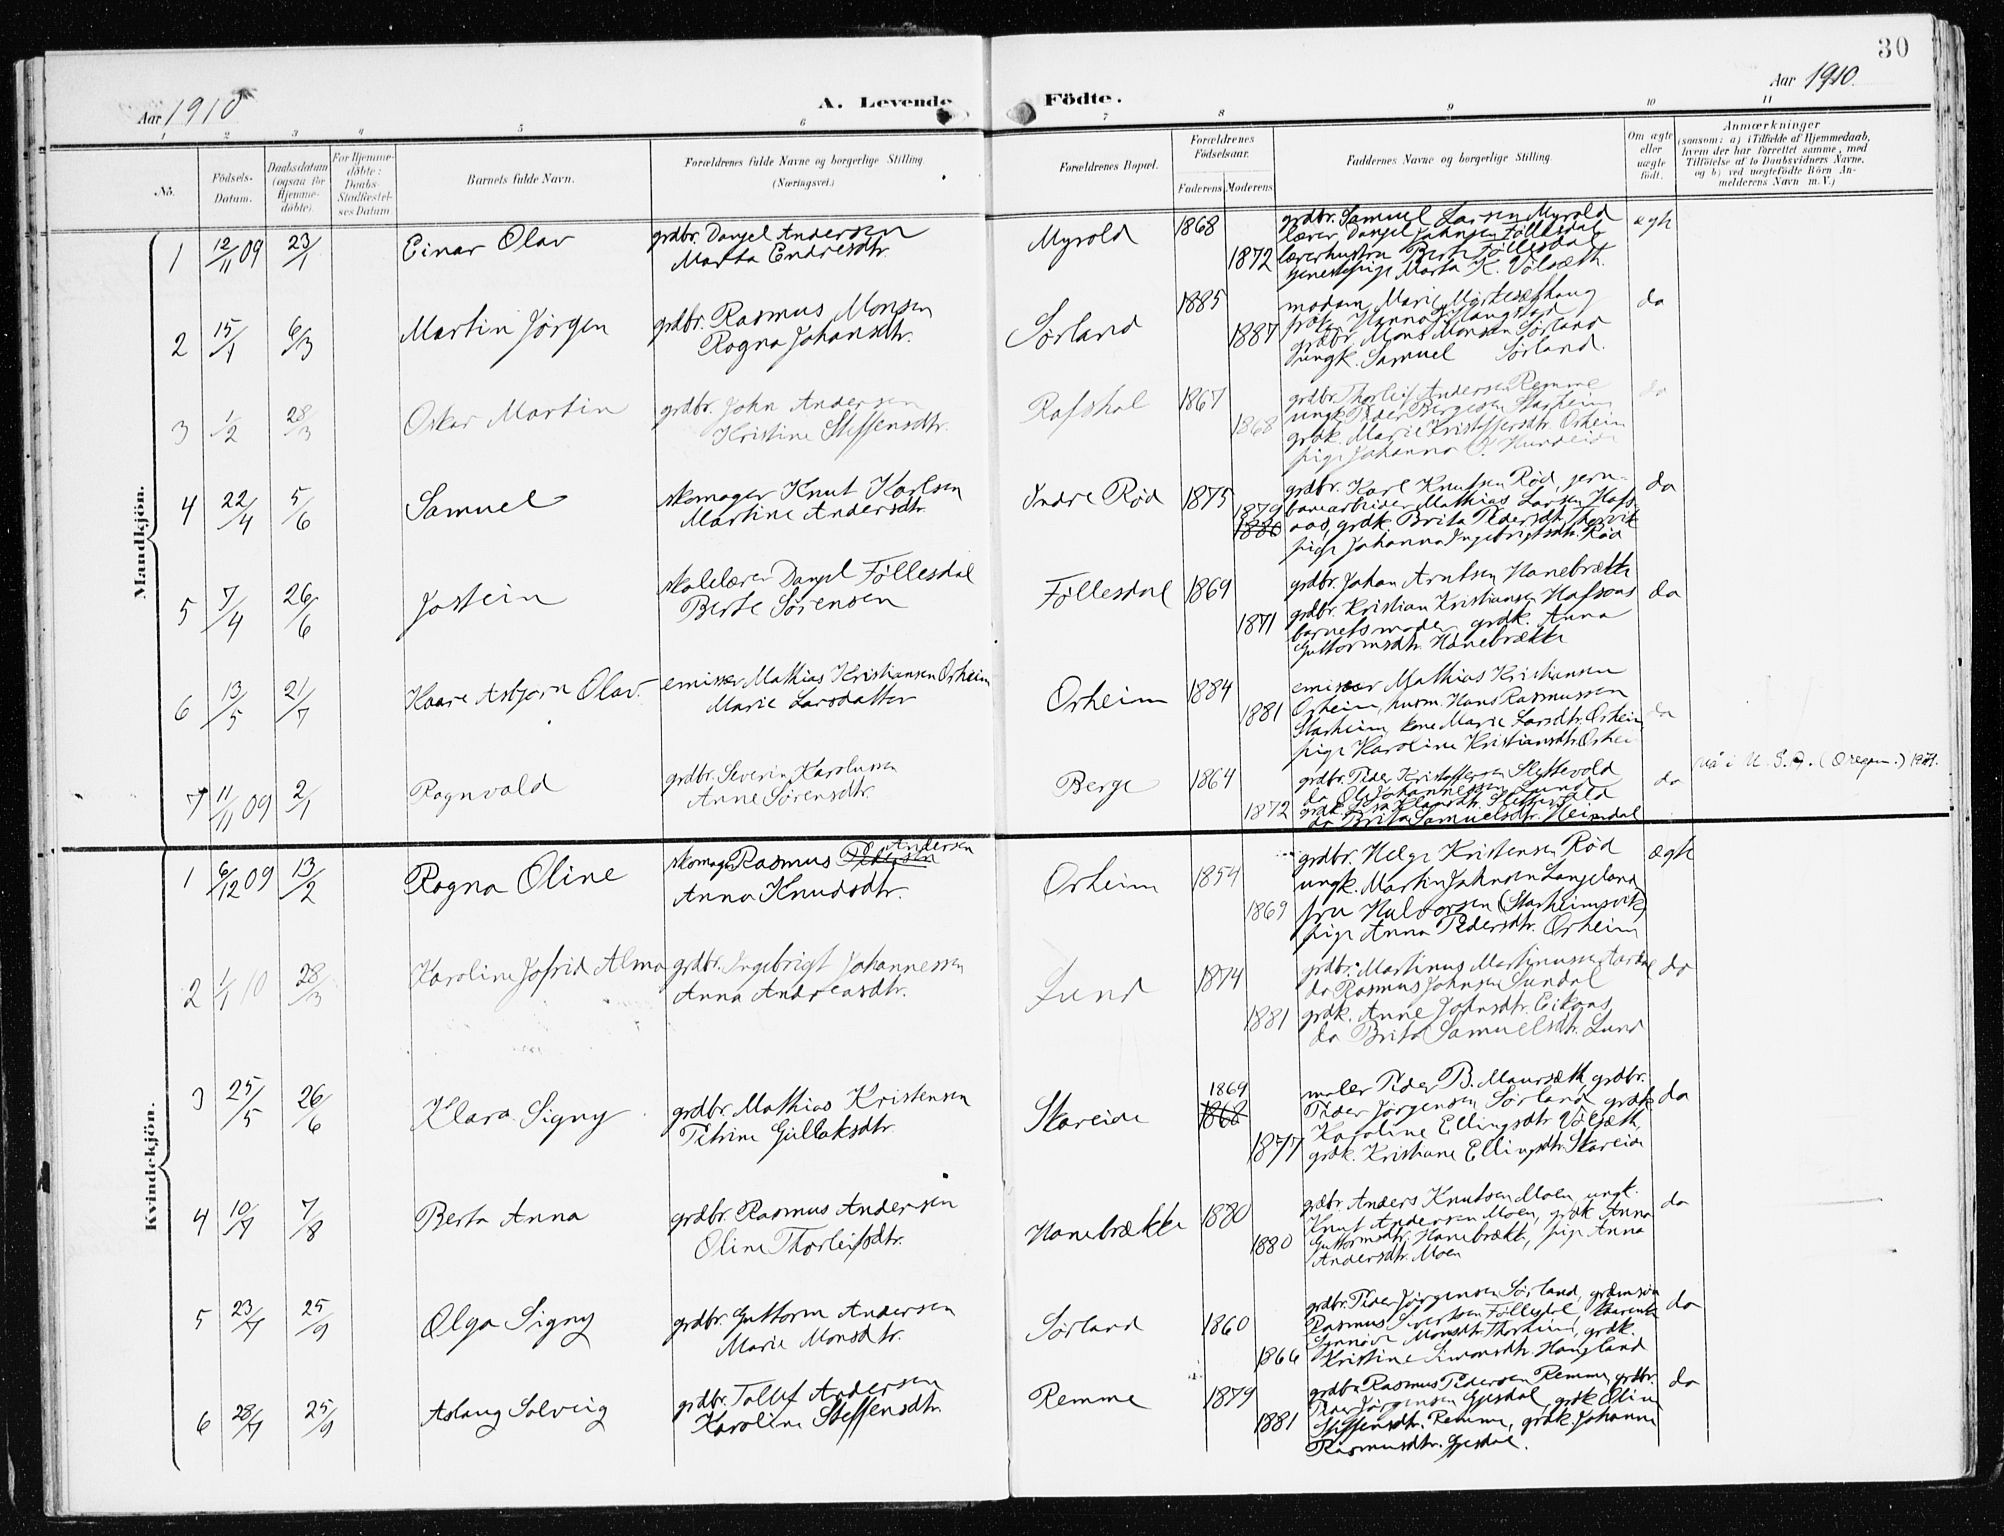 30
Aar 1910
A. Levende Födte.
Aar 1910.
1 2 3 4 5 6 7 8 9 10 11
No. Födsels-Datum. Daabsdatum (ogsaa for Hjemmedöbte). For Hjemmedöbte: Daabs-Stadfæstelses Datum Barnets fulde Navn. Forældrenes fulde Navne og borgerlige Stilling (Næringsvei.) Forældrenes Bopæl. Forældrenes Födselsaar. Faderens Moderens Faddernes Navne og borgerlige Stilling. Om ægte eller uægte födt. Anmærkninger (saasom: a) i Tilfælde af Hjemmedaab, hvem der har forrettet samme, med Tilföielse af to Daabsvidners Navne, og b) ved uægtefödte Börn Anmelderens Navn m. V.)
Mandkjön.
1 12/11 09 23/1 Einar Olav grdbr. Danjel Andersen Myrold 1868 grdbr. Samuel Larsen Myrold ægte
Marta Endresdtr. 1872 lærer Danjel Johnsen Föllesdal
lærerhustru Berte Föllesdal
tjenestepige Marta K. Völsæth.
2 15/1 6/3 Martin Jørgen grdbr. Rasmus Monsen Sørland 1885 madam Marie da
Ragna Johansdtr. 1887 grdbr. Mons Monsen Sørland
ungk. Samuel Sørland.
3 1/2 28/3 Oskar Martin grdbr. John Andersen Rafskal 1867 grdbr. Thorleif Andersen Remme da
Kristine Steffensdtr. 1868 ungk. Peder Bergesen Starheim
grdk. Marie Kristoffersdtr. Orheim
pige Johanna O. Hundeide
4 22/4 5/6 Samuel skomager Knut Karlsen Indre Rød 1875 grdbr. Karl Knutsen Rød, jern- da
Martine Andersdtr. 1879 1880 banearbeider Mathias Larsen Hafs-
aas, grdk. Brita Pedersdtr.
pige Johanna Ingebrigtsdtr. Rød
5 7/4 26/6 Jostein skolelærer Danjel Föllesdal Föllesdal 1869 grdbr. Johan Arntsen Hanebrække da
Berte Sørensen 1871 grdbr. Kristian Kristiansen Hafsaas
barnets moder, grdk. Anna
Guttormsdtr. Hanebrække
6 13/5 21/7 Kaare Asbjørn Olav. emissær Mathias Kristiansen Orheim Orheim 1884 emissær Mathias Kristiansen da
Marie Larsdatter 1881 Orheim, husm. Hans Rasmussen
Starheim, kone Marie Larsdtr. Orheim,
pige Karoline Kristiansdtr. Orheim
7 11/11 09 2/1 Ragnvald grdbr. Severin Karolussen Berge 1864 grdbr. Peder Kristoffersen Slyttevold da U.S.A. (Oregon.)
Anne Sørensdtr. 1872 do Ole Johannessen Lund
do Brita Samuelsdtr. Heimdal
Kvindekjön.
1 6/12 09 13/2 Ragna Oline skomager Rasmus Pedersen Andersen Orheim 1854 grdbr. Helge Kristensen Rød ægte
Anna Knudsdtr. 1869 ungk. Martin Johnsen Langeland
fru Halvorsen (Starheimsvik)
pige Anna Pedersdtr. Orheim
2 1/1 10 28/3 Karoline Jofrid Alma grdbr. Ingebrigt Johannessen Lund 1874 grdbr. Martinus Martinussen Aardal do
Anna Andreasdtr. 1881 do Rasmus Johnsen Sundal
grdk. Anne Johnsdtr. Eikaas
do Brita Samuelsdtr. Lund
3 25/5 26/6 Klara Signy grdbr. Mathias Kristensen Skareide 1869 1868 maler Peder B. Maursæth, grdbr. da
Petrine Gullaksdtr. 1877 Peder Jørgensen Sørland, grdk.
Karoline Ellingsdtr. Völsæth,
grdk. Kristiane Ellingsdtr. Skareide
4 10/7 7/8 Berta Anna grdbr. Rasmus Andersen Hanebrække 1880 grdbr. Anders Knutsen Moen, ungk. da
Oline Thorleifsdtr. 1880 Knut Andersen Moen, grdk. Anna
Guttormsdtr. Hanebrække, pige Anna
Andersdtr. Moen
5 23/7 25/9 Olga Signy grdbr. Guttorm Andersen Sørland 1860 grdbr. Peder Jørgensen Sørland, grdmsøn da
Marie Monsdtr. 1866 Rasmus Sivertsen Föllesdal,
Synnöve Monsdtr. Thorheim, grdk.
Kristine Simonsdtr. Haugland
6 28/7 25/9 Aslaug Solveig grdbr. Tollef Andersen Remme 1879 grdbr. Rasmus Pedersen Remme, grdbr. da
Karoline Steffensdtr. 1881 Peder Jørgensen Gjesdal, grdk. Oline
Steffensdtr. Remme, grdk. Johanne
Rasmusdtr. Gjesdal.